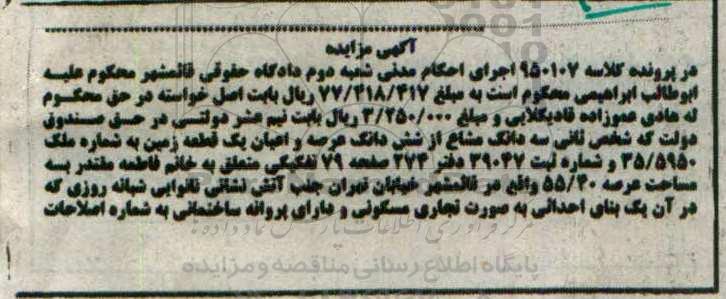 آگهی مزایده
در پرونده کلاسه ۹۵۰۱۰۷ اجرای احکام مدنی شعبه دوم دادگاه حقوقی قائمشهر محکوم علیه
ابوطالب ابراهیمی محکوم است به مبلغ ۷۷/۴۱۸/۴۱۷ ریال بابت اصل خواسته در حق محکوم
له هادی عموزاده قادیکلایی و مبلغ ۳/۲۵۰/۰۰۰ ریال بابت نیم عشر دولتی در حق صندوق
دولت که شخص ثانی سه دانگ مشاع از شش دانگ عرصه و اعیان یک قطعه زمین به شماره ملک
۳۵/۵۹۵۰ و شماره ثبت ۳۹۰۴۷ دفتر ۲۷۴ صفحه ۷۹ تفکیکی متعلق به خانم فاطمه مقتدر بسه
مساحت عرصه ۵۵/۲۰ واقع در قائمشهر خیابان تهران جنب آتش نشانی نانوایی شبانه روزی که
در آن یک بنای احداثی به صورت تجاری مسکونی و دارای پروانه ساختمانی به شماره اصلاحات
پایگاه اطلاع رسانی مناقصه و مزایده